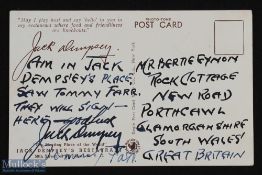 "May I play host and say 'hello' to you in
my restaurant where food and friendliness
are knockouts."
Jack Dempsey
PHOTO-TONE
POST CARD
AM IN JACK
DEMPSEY'S PLACE,
SAW TOMMY FARR,
THEY WILL SIGN
HERE - good luck
Jack Dempsey
Tommy Farr.
Meeting Place of the World
JACK DEMPSEY'S RESTAURANT
MR BERTIE EYNON
ROCK COTTAGE
NEW ROAD
PORTHCAWL
GLAMORGANSHIRE
SOUTH WALES
GREAT BRITAIN
Mullock's